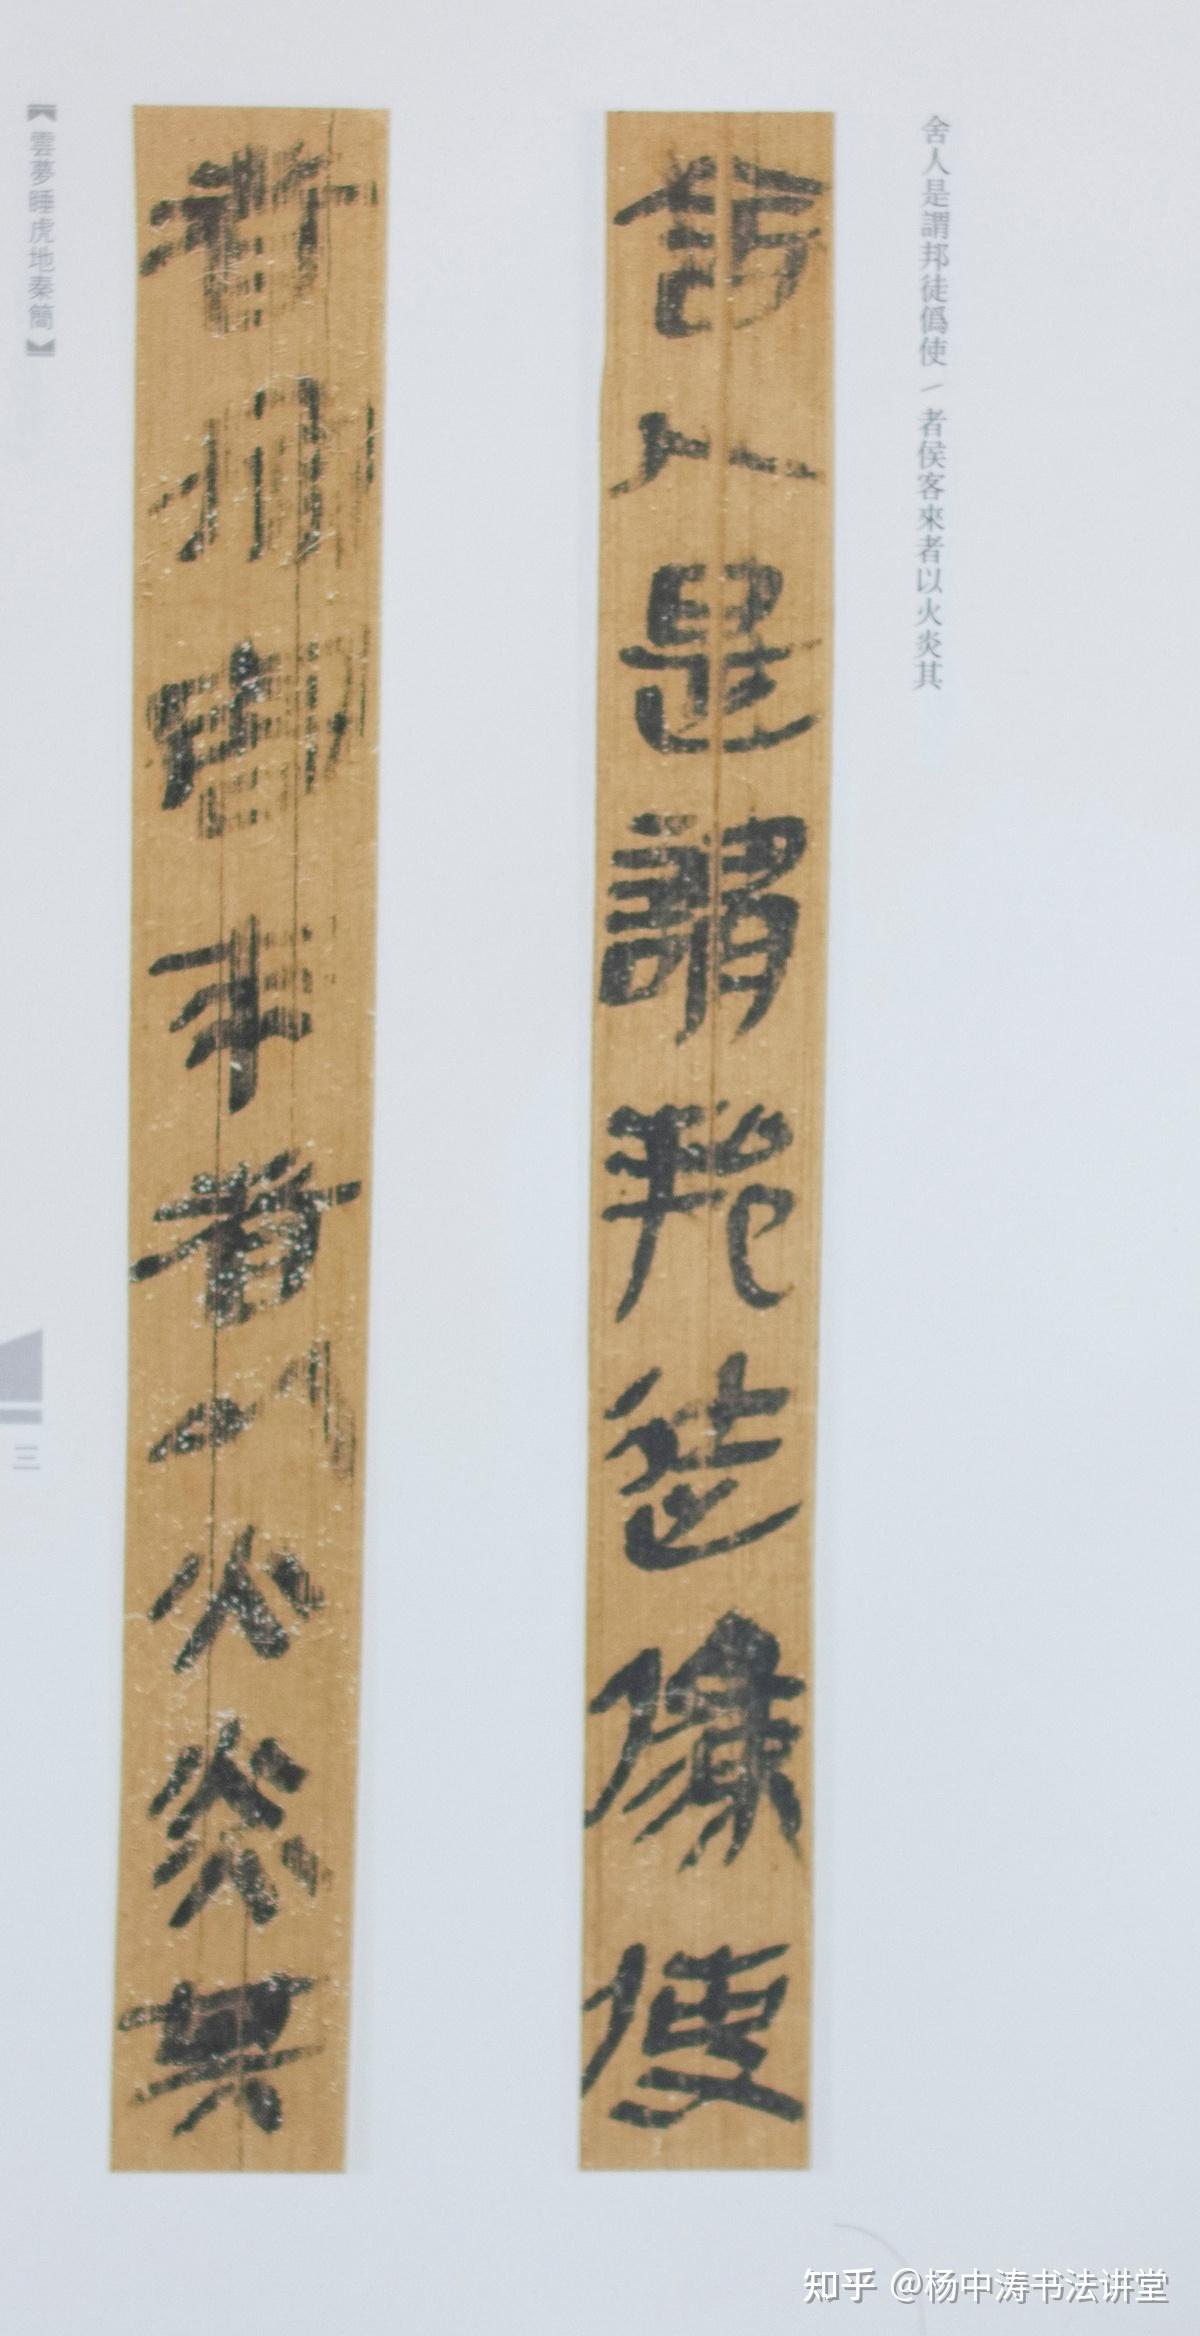 舍人是謂邦徒僞使／者侯客來者以火炎其
舍人是謂邦徒僞使
者侯客來者以火炎其
【雲夢睡虎地秦簡】
三
知乎 @杨中涛书法讲堂